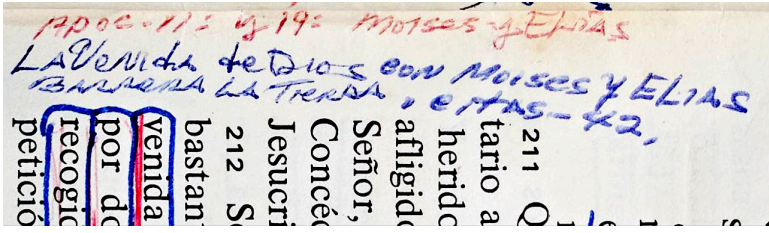 Apoc-11: y 19: Moises y Elias
LA Venida de Dios con Moises Y ELIAS
BARRERA LA TIERRA,
211 Q
tario a
herido
afligido
Señor,
Concéd
Jesucri
212 S
bastan
venida
por do
recogid
petició